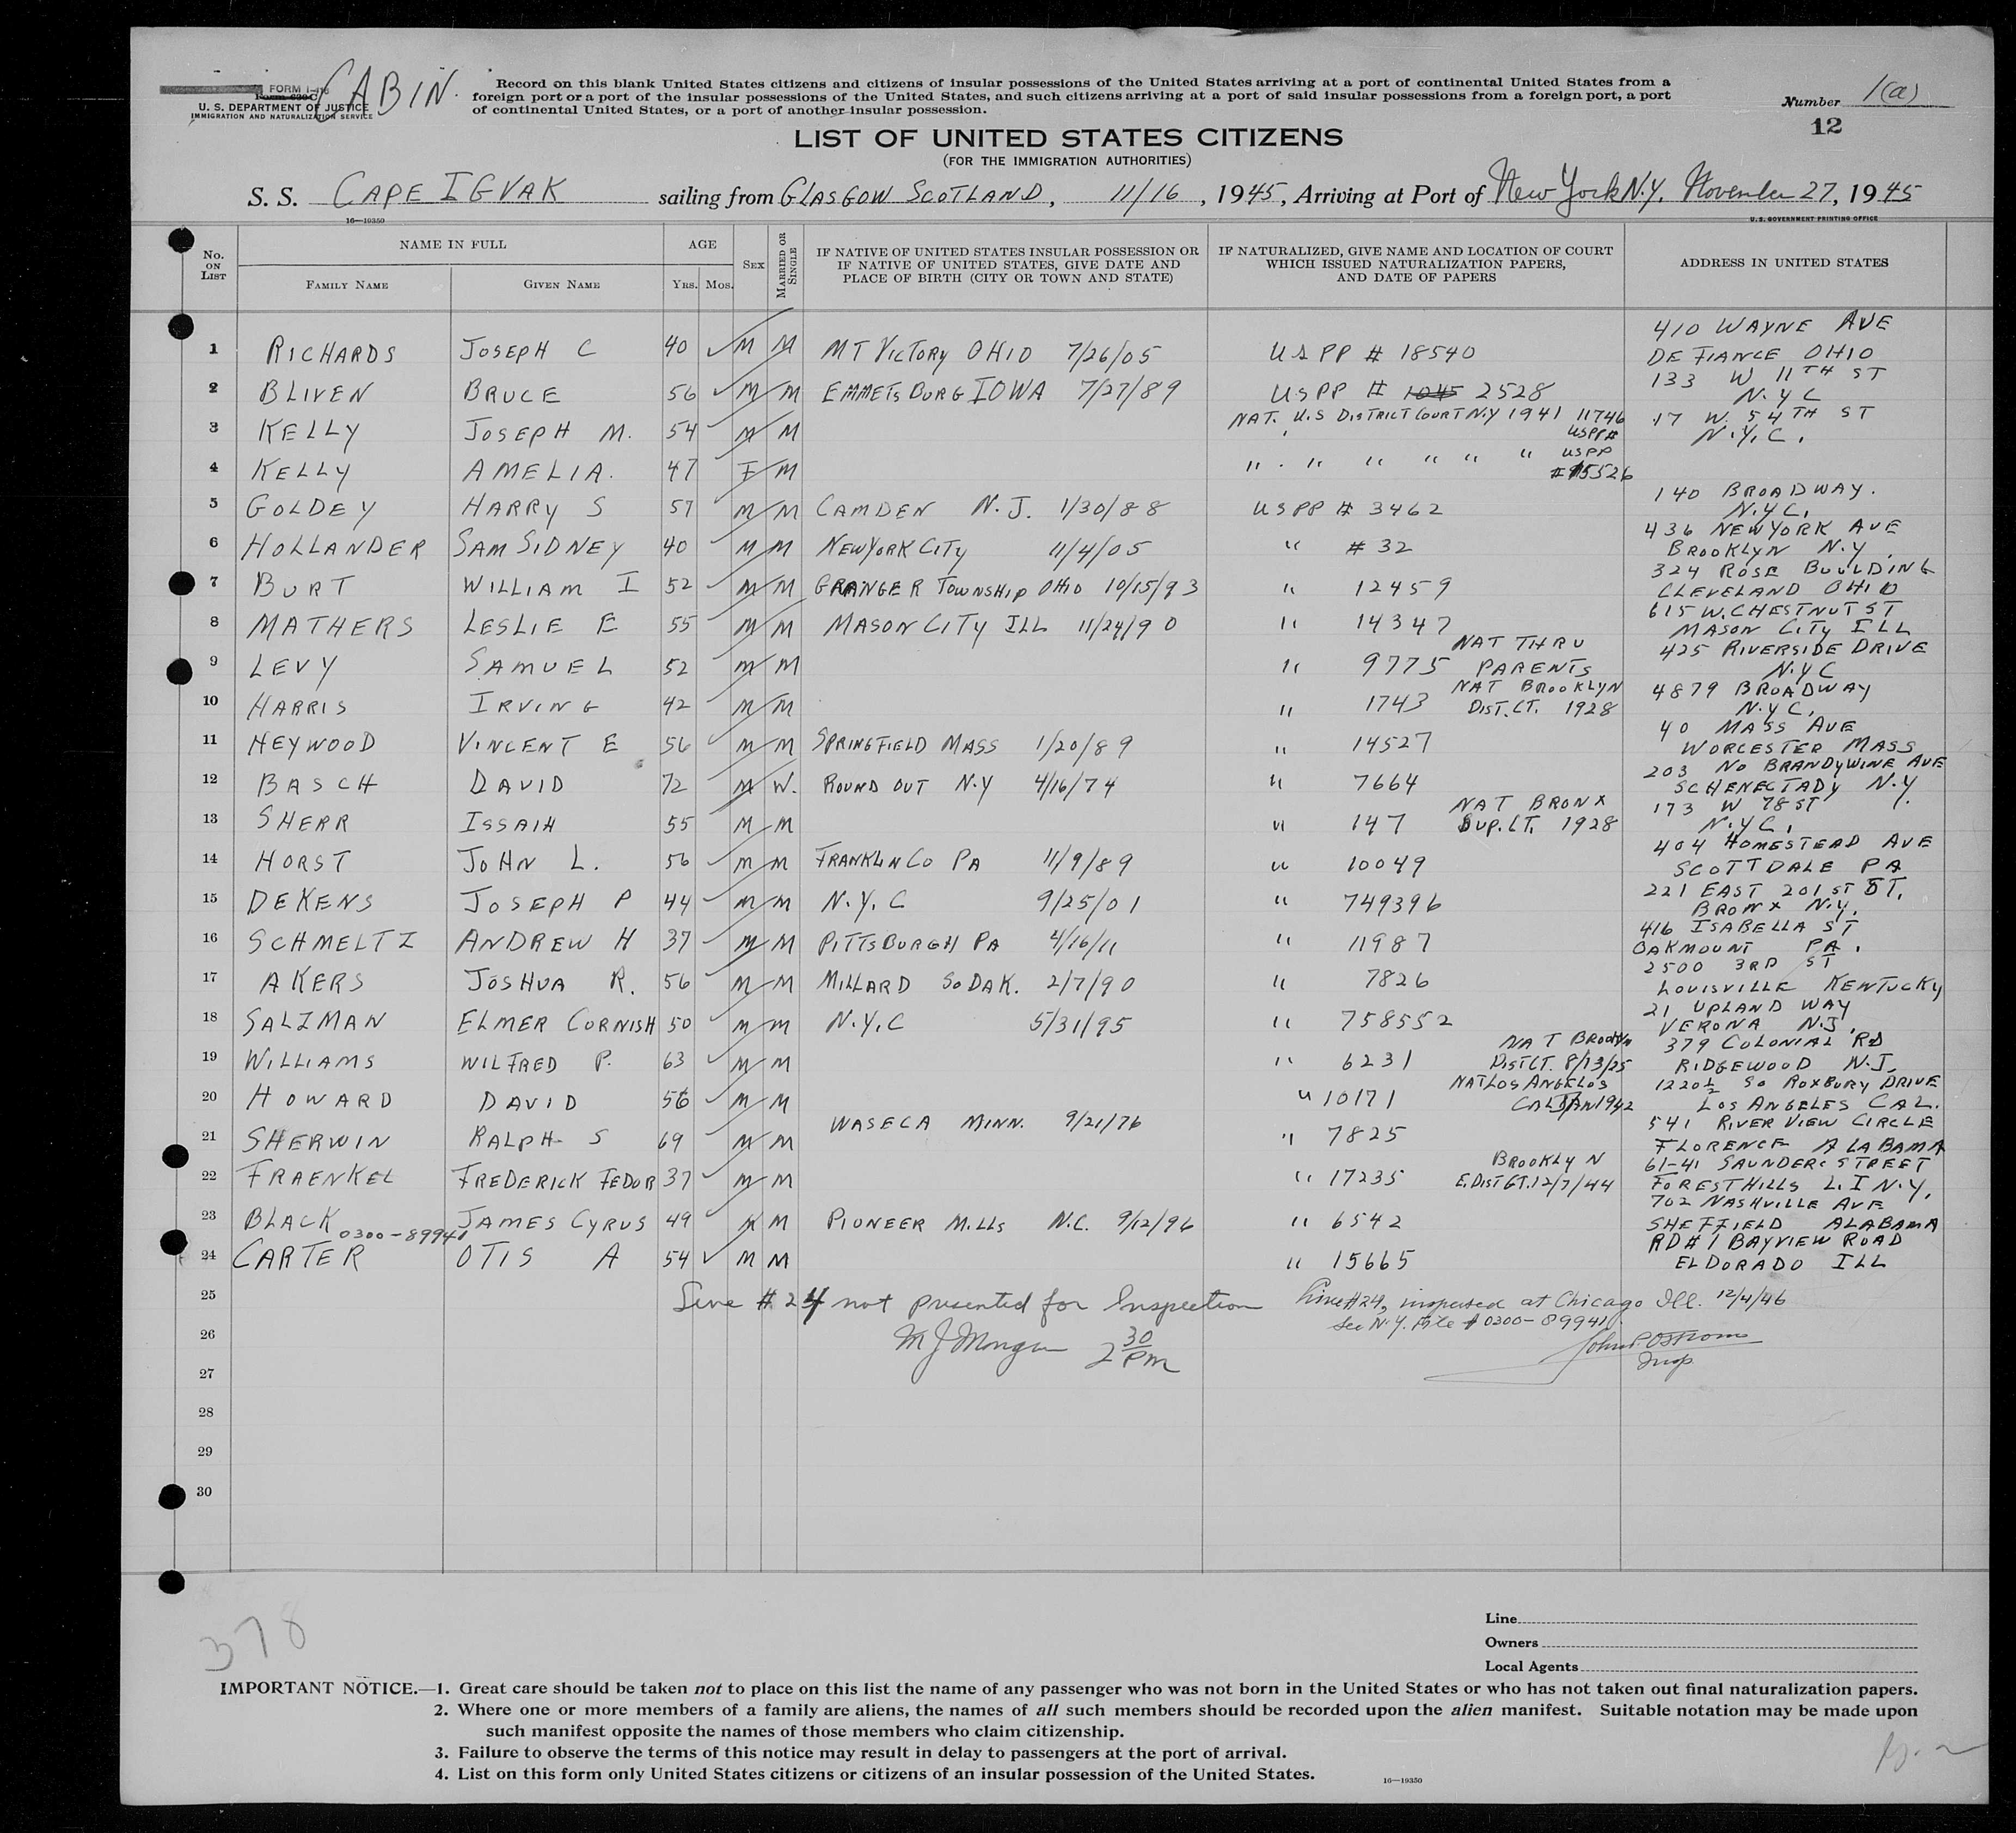 FORM I-416
CABIN.
U. S. DEPARTMENT OF JUSTICE
IMMIGRATION AND NATURALIZATION SERVICE
Record on this blank United States citizens and citizens of insular possessions of the United States arriving at a port of continental United States from a
foreign port or a port of the insular possessions of the United States, and such citizens arriving at a port of said insular possessions from a foreign port, a port
of continental United States, or a port of another insular possession.
Number 1(a)
12
LIST OF UNITED STATES CITIZENS
(FOR THE IMMIGRATION AUTHORITIES)
S. S. CAPE IGVAK sailing from GLASGOW SCOTLAND, 11/16, 1945, Arriving at Port of New York N.Y. November 27, 1945
16—19350
U. S. GOVERNMENT PRINTING OFFICE
No. ON LIST NAME IN FULL FAMILY NAME GIVEN NAME AGE YRS. MOS. SEX MARRIED OR SINGLE
IF NATIVE OF UNITED STATES INSULAR POSSESSION OR
IF NATIVE OF UNITED STATES, GIVE DATE AND
PLACE OF BIRTH (CITY OR TOWN AND STATE)
IF NATURALIZED, GIVE NAME AND LOCATION OF COURT
WHICH ISSUED NATURALIZATION PAPERS,
AND DATE OF PAPERS
ADDRESS IN UNITED STATES
1 RICHARDS JOSEPH C 40 M M MT VICTORY OHIO 7/26/05 US PP # 18540 410 WAYNE AVE
DEFIANCE OHIO
2 BLIVEN BRUCE 56 M M EMMETSBURG IOWA 7/27/89 US PP # 2528 133 W 11TH ST
N.Y C
3 KELLY JOSEPH M. 54 M M NAT. U.S DISTRICT COURT N.Y 1941 11746 USPP# 17 W. 54TH ST
N.Y.C.
4 KELLY AMELIA. 47 F M " " " " " " USPP #15526
5 GOLDEY HARRY S 57 M M CAMDEN N.J. 1/30/88 USPP # 3462 140 BROADWAY.
N.Y.C.
6 HOLLANDER SAM SIDNEY 40 M M NEW YORK CITY 11/4/05 " # 32 436 NEW YORK AVE
BROOKLYN N.Y.
7 BURT WILLIAM I 52 M M GRANGER TOWNSHIP OHIO 10/15/93 " 12459 324 ROSE BUULDING
CLEVELAND OHIO
8 MATHERS LESLIE E 55 M M MASON CITY ILL 11/24/90 " 14347 615 W. CHESTNUT ST
MASON CITY ILL
9 LEVY SAMUEL 52 M M " 9775 NAT THRU PARENTS 425 RIVERSIDE DRIVE
N.Y C
10 HARRIS IRVING 42 M M " 1743 NAT BROOKLYN DIST. CT. 1928 4879 BROADWAY
N.Y C.
11 HEYWOOD VINCENT E 56 M M SPRINGFIELD MASS 1/20/89 " 14527 40 MASS AVE
WORCESTER MASS
12 BASCH DAVID 72 M W. ROUND OUT N.Y 4/16/74 " 7664 203 NO BRANDYWINE AVE
SCHENECTADY N.Y.
13 SHERR ISSAIH 55 M M " 147 NAT BRONX SUP. CT. 1928 173 W 78 ST
N.Y C.
14 HORST JOHN L. 56 M M FRANKLIN CO PA 11/9/89 " 10049 404 HOMESTEAD AVE
SCOTTDALE PA
15 DEKENS JOSEPH P 44 M M N.Y.C 9/25/01 " 749396 221 EAST 201 ST ST.
BRONX N.Y.
16 SCHMELTZ ANDREW H 37 M M PITTSBURGH PA 4/16/11 " 11987 416 ISABELLA ST
OAKMOUNT PA.
17 AKERS JOSHUA R. 56 M M MILLARD SO DAK. 2/7/90 " 7826 2500 3RD ST
LOUISVILLE KENTUCKY
18 SALZMAN ELMER CORNISH 50 M M N.Y.C 5/31/95 " 758552 21 UPLAND WAY
VERONA N.J.
19 WILLIAMS WILFRED P. 63 M M " 6231 NAT BROOKLYN DIST CT. 8/13/25 379 COLONIAL RD
RIDGEWOOD N.J.
20 HOWARD DAVID 56 M M " 10171 NAT LOS ANGELOS CAL JAN 1942 1220½ SO ROXBURY DRIVE
LOS ANGELES CAL.
21 SHERWIN RALPH S 69 M M WASECA MINN. 9/21/76 " 7825 541 RIVER VIEW CIRCLE
FLORENCE ALABAMA
22 FRAENKEL FREDERICK FEDOR 37 M M " 17235 BROOKLYN E. DIST CT. 12/7/44 61-41 SAUNDERS STREET
FOREST HILLS L. I N.Y.
23 BLACK JAMES CYRUS 49 M M PIONEER MILLS N.C. 9/12/96 " 6542 702 NASHVILLE AVE
SHEFFIELD ALABAMA
0300-89941
24 CARTER OTIS A 54 M M " 15665 RD # 1 BAYVIEW ROAD
ELDORADO ILL
25 Line # 24 not presented for Inspection Line #24, inspected at Chicago Ill. 12/4/46
See N.Y. File # 0300-89941.
26 M J Morgan 2 30 PM John P. Ostrom
Insp
27
28
29
30
378
Line
Owners
Local Agents
IMPORTANT NOTICE.—1. Great care should be taken not to place on this list the name of any passenger who was not born in the United States or who has not taken out final naturalization papers.
2. Where one or more members of a family are aliens, the names of all such members should be recorded upon the alien manifest. Suitable notation may be made upon
such manifest opposite the names of those members who claim citizenship.
3. Failure to observe the terms of this notice may result in delay to passengers at the port of arrival.
4. List on this form only United States citizens or citizens of an insular possession of the United States.
16—19350